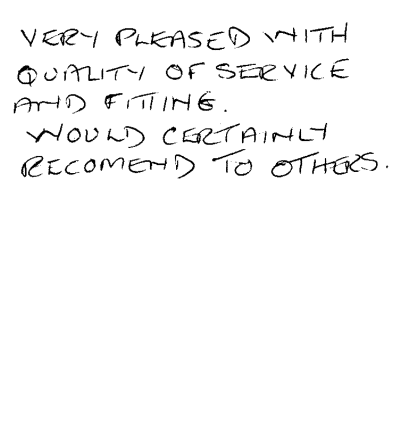 VERY PLEASED WITH
QUALITY OF SERVICE
AND FITTING.
WOULD CERTAINLY
RECOMEND TO OTHERS.